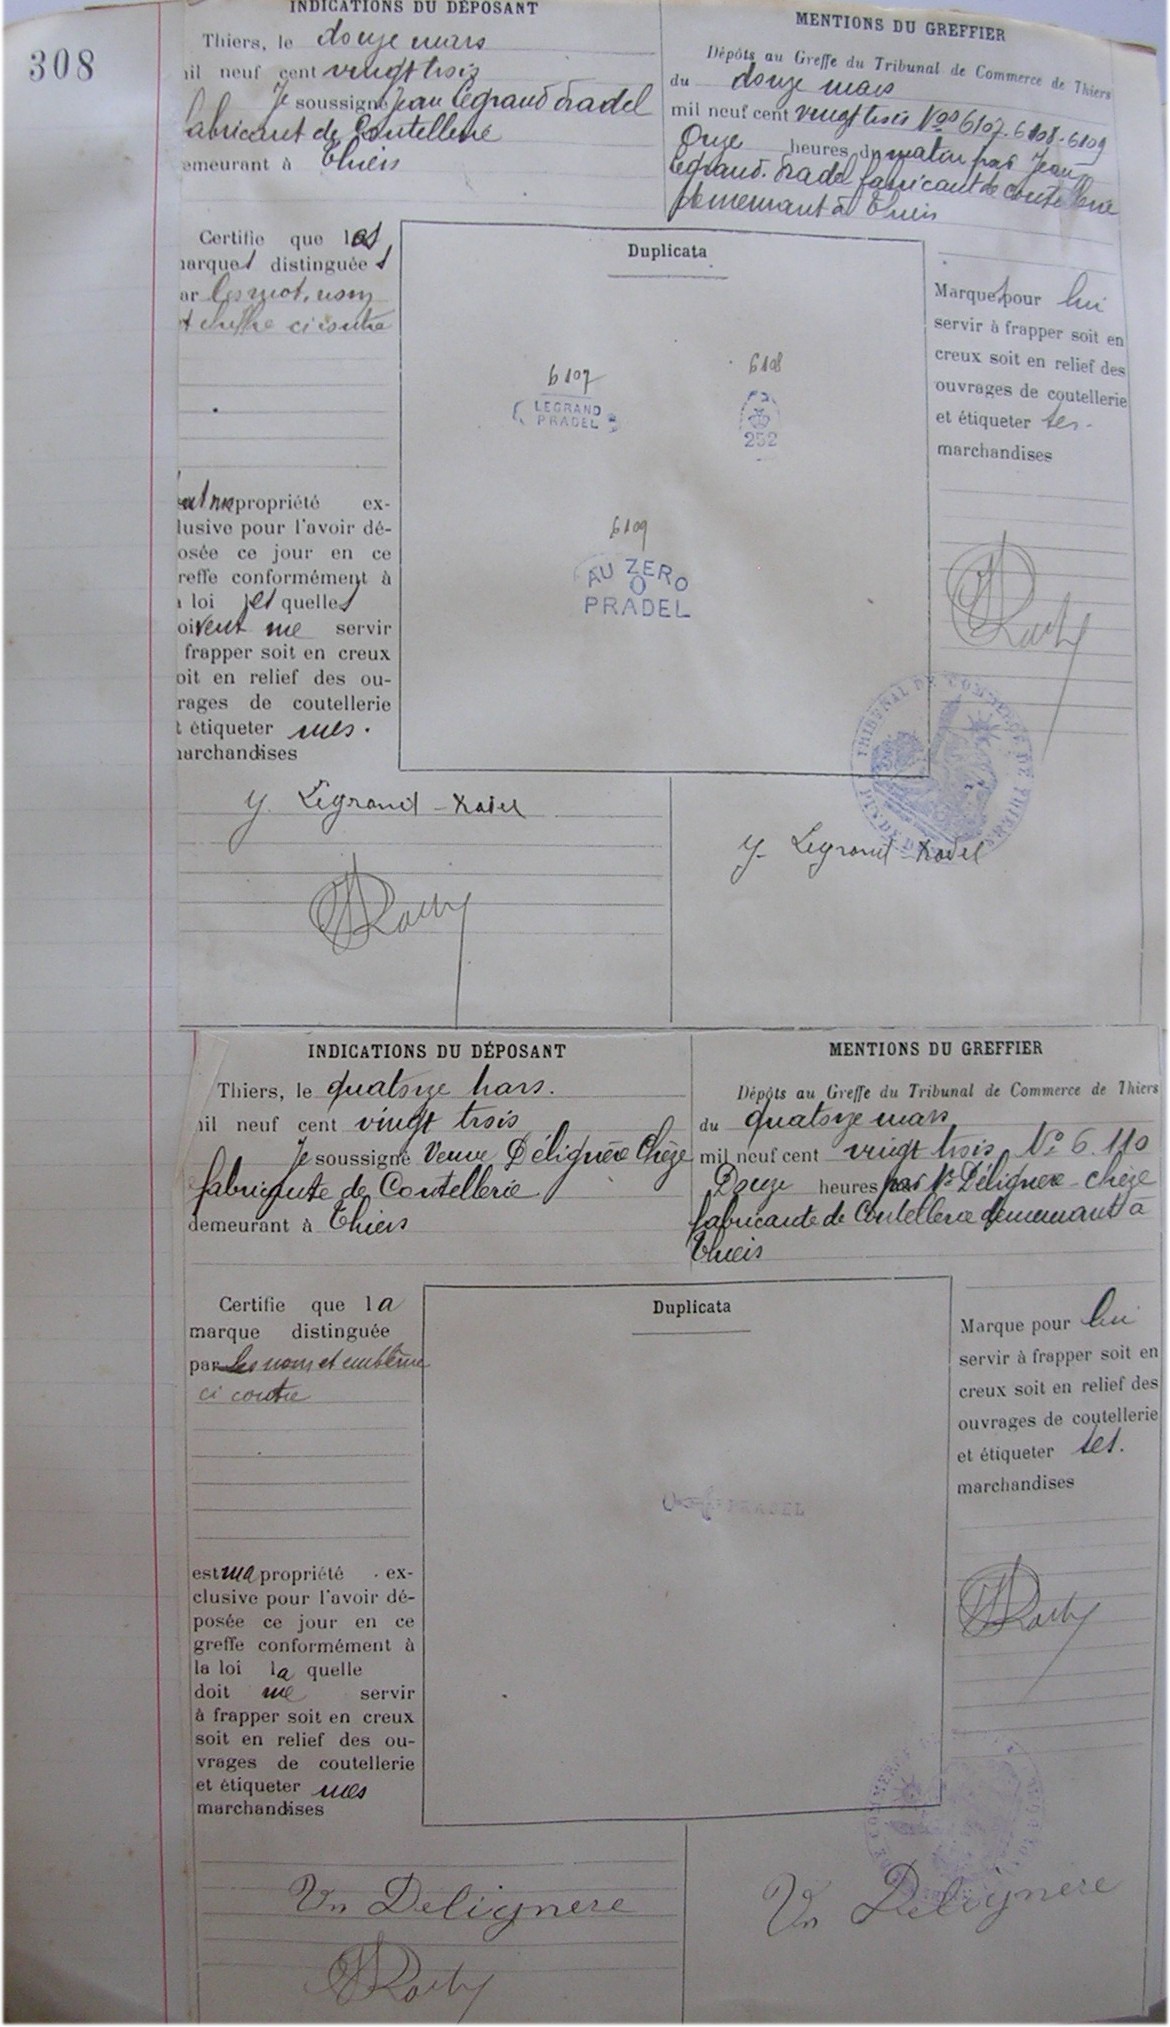 308
INDICATIONS DU DÉPOSANT
Thiers, le douze mars
mil neuf cent vingt trois
Je soussigné Jean Legrand Pradel
fabricant de Coutellerie
demeurant à Thiers
MENTIONS DU GREFFIER
Dépôts au Greffe du Tribunal de Commerce de Thiers
du douze mars
mil neuf cent vingt trois Nos 6107-6108-6109
Onze heures du matin par Jean
Legrand-Pradel fabricant de coutellerie
demeurant à Thiers
Certifie que les
marques distinguées
par les mot, nom
et chiffre ci contre
sont ma propriété ex-
clusive pour l'avoir dé-
posée ce jour en ce
greffe conformément à
la loi les quelles
doivent me servir
à frapper soit en creux
soit en relief des ou-
vrages de coutellerie
et étiqueter mes
marchandises
Duplicata
6107
LEGRAND
PRADEL
6108
252
6109
AU ZERO
0
PRADEL
Marques pour lui
servir à frapper soit en
creux soit en relief des
ouvrages de coutellerie
et étiqueter ses
marchandises
TRIBUNAL DE COMMERCE DE THIERS
PUY-DE-DOME
J. Legrand-Pradel
J. Legrand-Pradel
INDICATIONS DU DÉPOSANT
Thiers, le quatorze Mars.
mil neuf cent vingt trois
Je soussigné Veuve Délignère Chèze
fabriquante de Coutellerie
demeurant à Thiers
MENTIONS DU GREFFIER
Dépôts au Greffe du Tribunal de Commerce de Thiers
du quatorze mars
mil neuf cent vingt trois No 6.110
Douze heures par Ve Délignère-Chèze
fabricante de Coutellerie demeurant à
Thiers
Certifie que la
marque distinguée
par les nom et emblème
ci contre
est ma propriété ex-
clusive pour l'avoir dé-
posée ce jour en ce
greffe conformément à
la loi la quelle
doit me servir
à frapper soit en creux
soit en relief des ou-
vrages de coutellerie
et étiqueter mes
marchandises
Duplicata
PRADEL
Marque pour lui
servir à frapper soit en
creux soit en relief des
ouvrages de coutellerie
et étiqueter ses.
marchandises
Vve Delignere
Vve Delignere